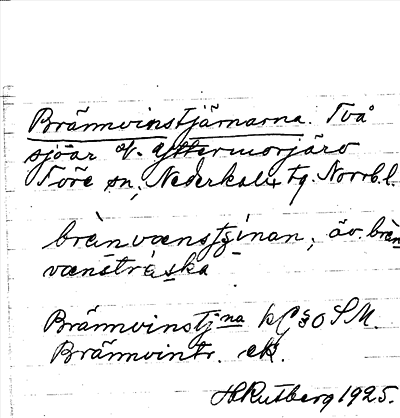 Brännvinstjärnarna. Två
sjöar å Yttermorjärv
Töre sn, Nederkalix tg. Norrb. l.
brànvænstjinan, äv. bràn
vænstræska
Brännvinstj:na kC30 SM.
Brännvintr. ek.
H Rutberg 1925.